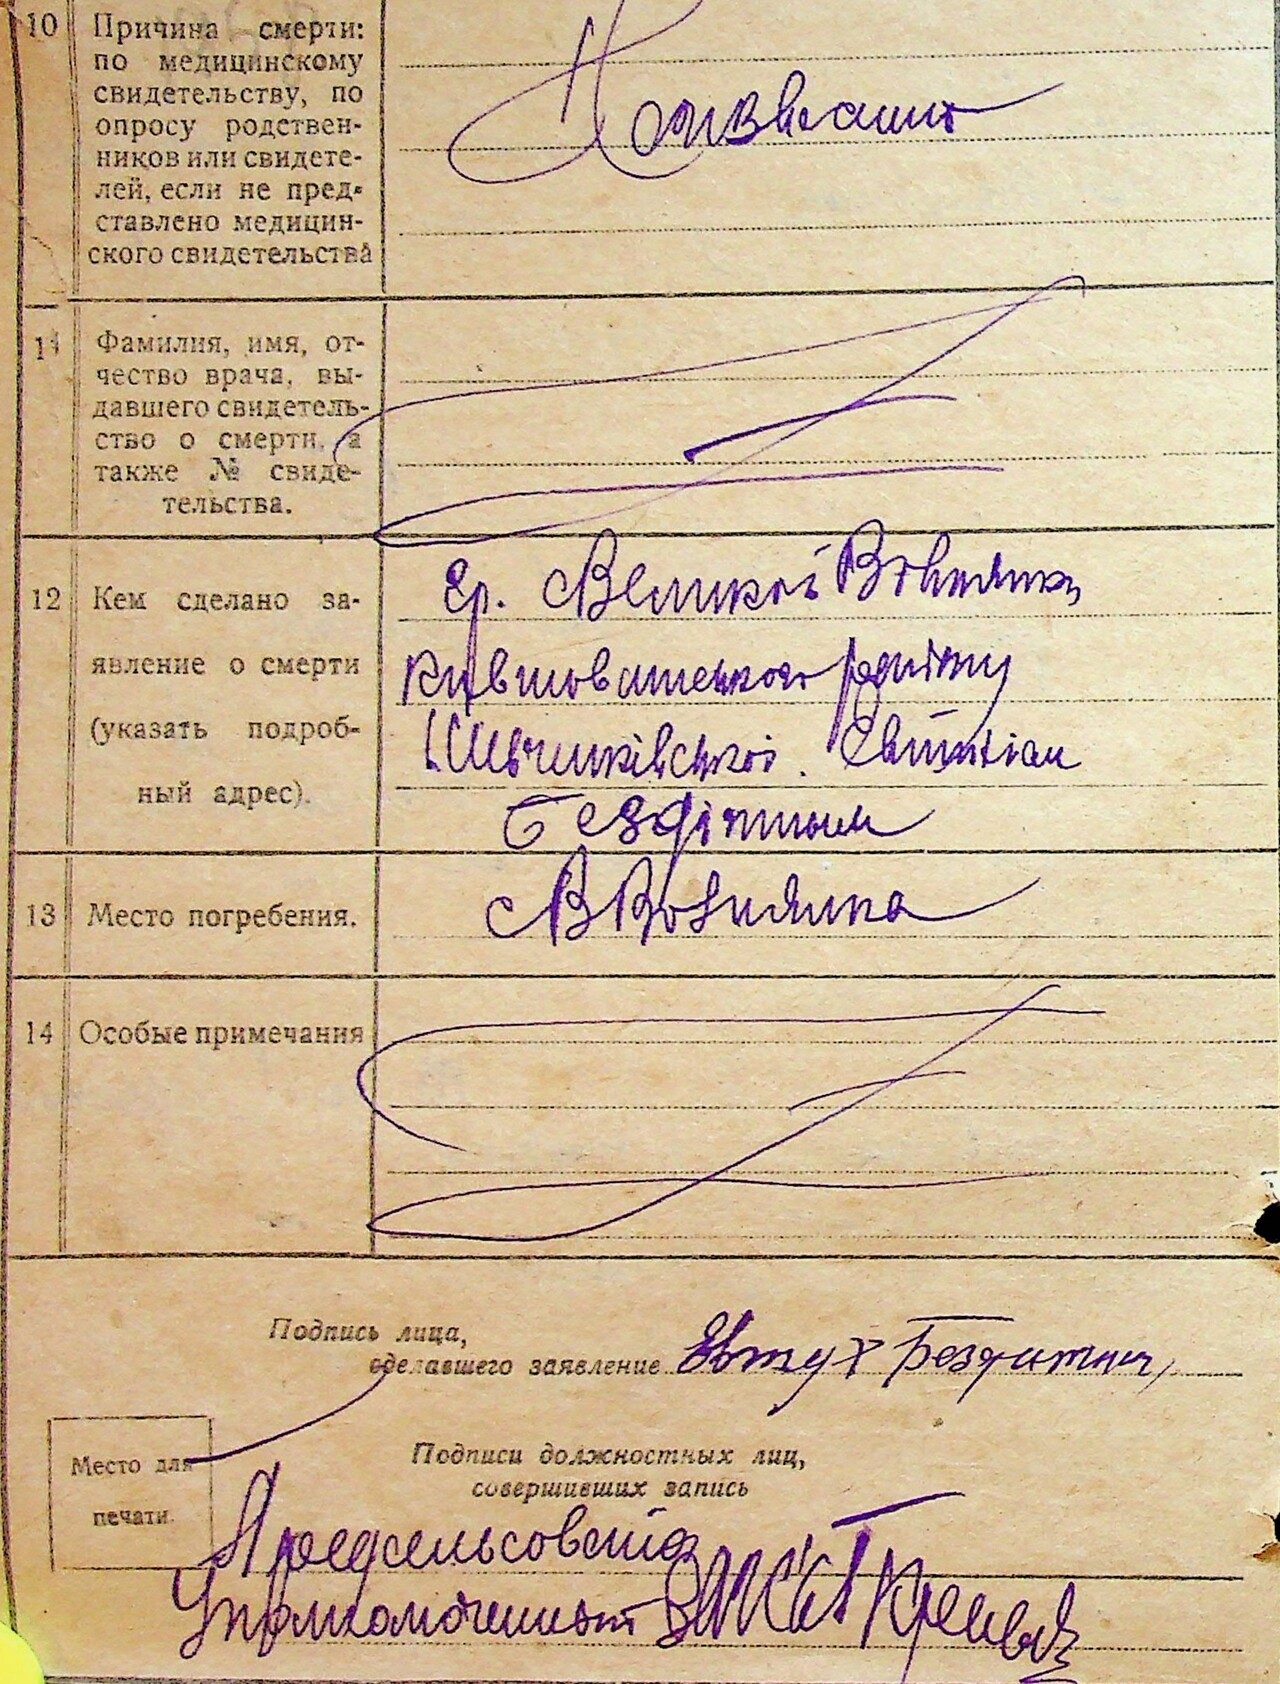 10 Причина смерти:
по медицинскому
свидетельству, по
опросу родствен-
ников или свидете-
лей, если не пред-
ставлено медицин-
ского свидетельства
11 Фамилия, имя, от-
чество врача, вы-
давшего свидетель-
ство о смерти, а
также № свиде-
тельства.
12 Кем сделано за-
явление о смерти
(указать подроб-
ный адрес).
гр. Великої
району
Шевченківської
Бездітним
13 Место погребения.
14 Особые примечания
Подпись лица,
сделавшего заявление Евтух Бездитний
Место для
печати.
Подписи должностных лиц,
совершивших запись
Предсельсовета
ЗАГС